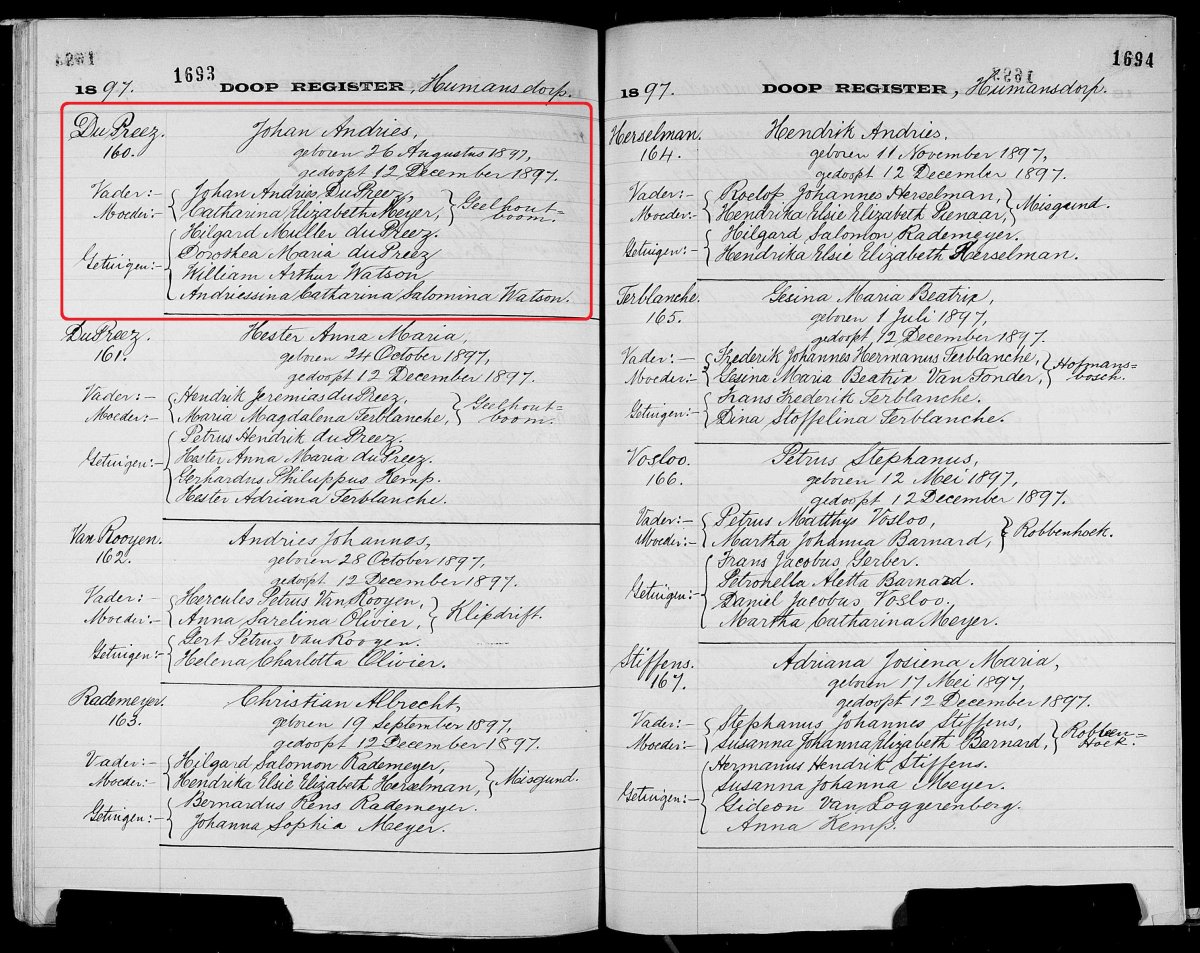 1693
1897. DOOP REGISTER, Humansdorp.
Du Preez. Johan Andries,
160. geboren 26 Augustus 1897,
gedoopt 12 December 1897.
Vader:- Johan Andries Du Preez,
Moeder:- Catharina Elizabeth Meyer, Geelhout=
boom.
Hilgard Muller du Preez.
Getuigen:- Dorothea Maria du Preez
William Arthur Watson
Andriessina Catharina Salomina Watson.
Du Preez. Hester Anna Maria,
161. geboren 24 October 1897,
gedoopt 12 December 1897.
Vader:- Hendrik Jeremias du Preez,
Moeder:- Maria Magdalena Terblanche, Geelhout=
boom.
Petrus Hendrik du Preez.
Getuigen:- Hester Anna Maria du Preez.
Gerhardus Philuppus Kemp.
Hester Adriana Terblanche.
Van Rooyen. Andries Johannes,
162. geboren 28 October 1897,
gedoopt 12 December 1897.
Vader:- Hercules Petrus Van Rooyen,
Moeder:- Anna Sarelina Olivier, Klipdrift.
Getuigen:- Gert Petrus van Rooyen.
Helena Charlotta Olivier.
Rademeyer. Christian Albrecht,
163. geboren 19 September 1897,
gedoopt 12 December 1897.
Vader:- Hilgard Salomon Rademeyer,
Moeder:- Hendrika Elsie Elizabeth Herselman, Misgund.
Getuigen:- Bernardus Rens Rademeyer.
Johanna Sophia Meyer.
1694
1897. DOOP REGISTER, Humansdorp.
Herselman. Hendrik Andries.
164. geboren 11 November 1897,
gedoopt 12 December 1897.
Vader:- Roelof Johannes Herselman,
Moeder:- Hendrika Elsie Elizabeth Pienaar, Misgund.
Getuigen:- Hilgard Salomon Rademeyer.
Hendrika Elsie Elizabeth Herselman.
Terblanche. Gesina Maria Beatrix,
165. geboren 1 Juli 1897,
gedoopt 12 December 1897.
Vader:- Frederik Johannes Hermanus Terblanche,
Moeder:- Gesina Maria Beatrix Van Tonder, Hofmans=
bosch.
Getuigen:- Frans Frederik Terblanche.
Dina Stoffelina Terblanche.
Vosloo. Petrus Stephanus,
166. geboren 12 Mei 1897,
gedoopt 12 December 1897.
Vader:- Petrus Matthys Vosloo,
Moeder:- Martha Johanna Barnard, Robbenhoek.
Frans Jacobus Gerber.
Getuigen:- Petronella Aletta Barnard.
Daniel Jacobus Vosloo.
Martha Catharina Meyer.
Stiffens. Adriana Josiena Maria,
167. geboren 17 Mei 1897,
gedoopt 12 December 1897.
Vader:- Stephanus Johannes Stiffens,
Moeder:- Susanna Johanna Elizabeth Barnard, Robben=
Hoek.
Hermanus Hendrik Stiffens.
Getuigen:- Susanna Johanna Meyer.
Gideon Van Loggerenberg.
Anna Kemp.